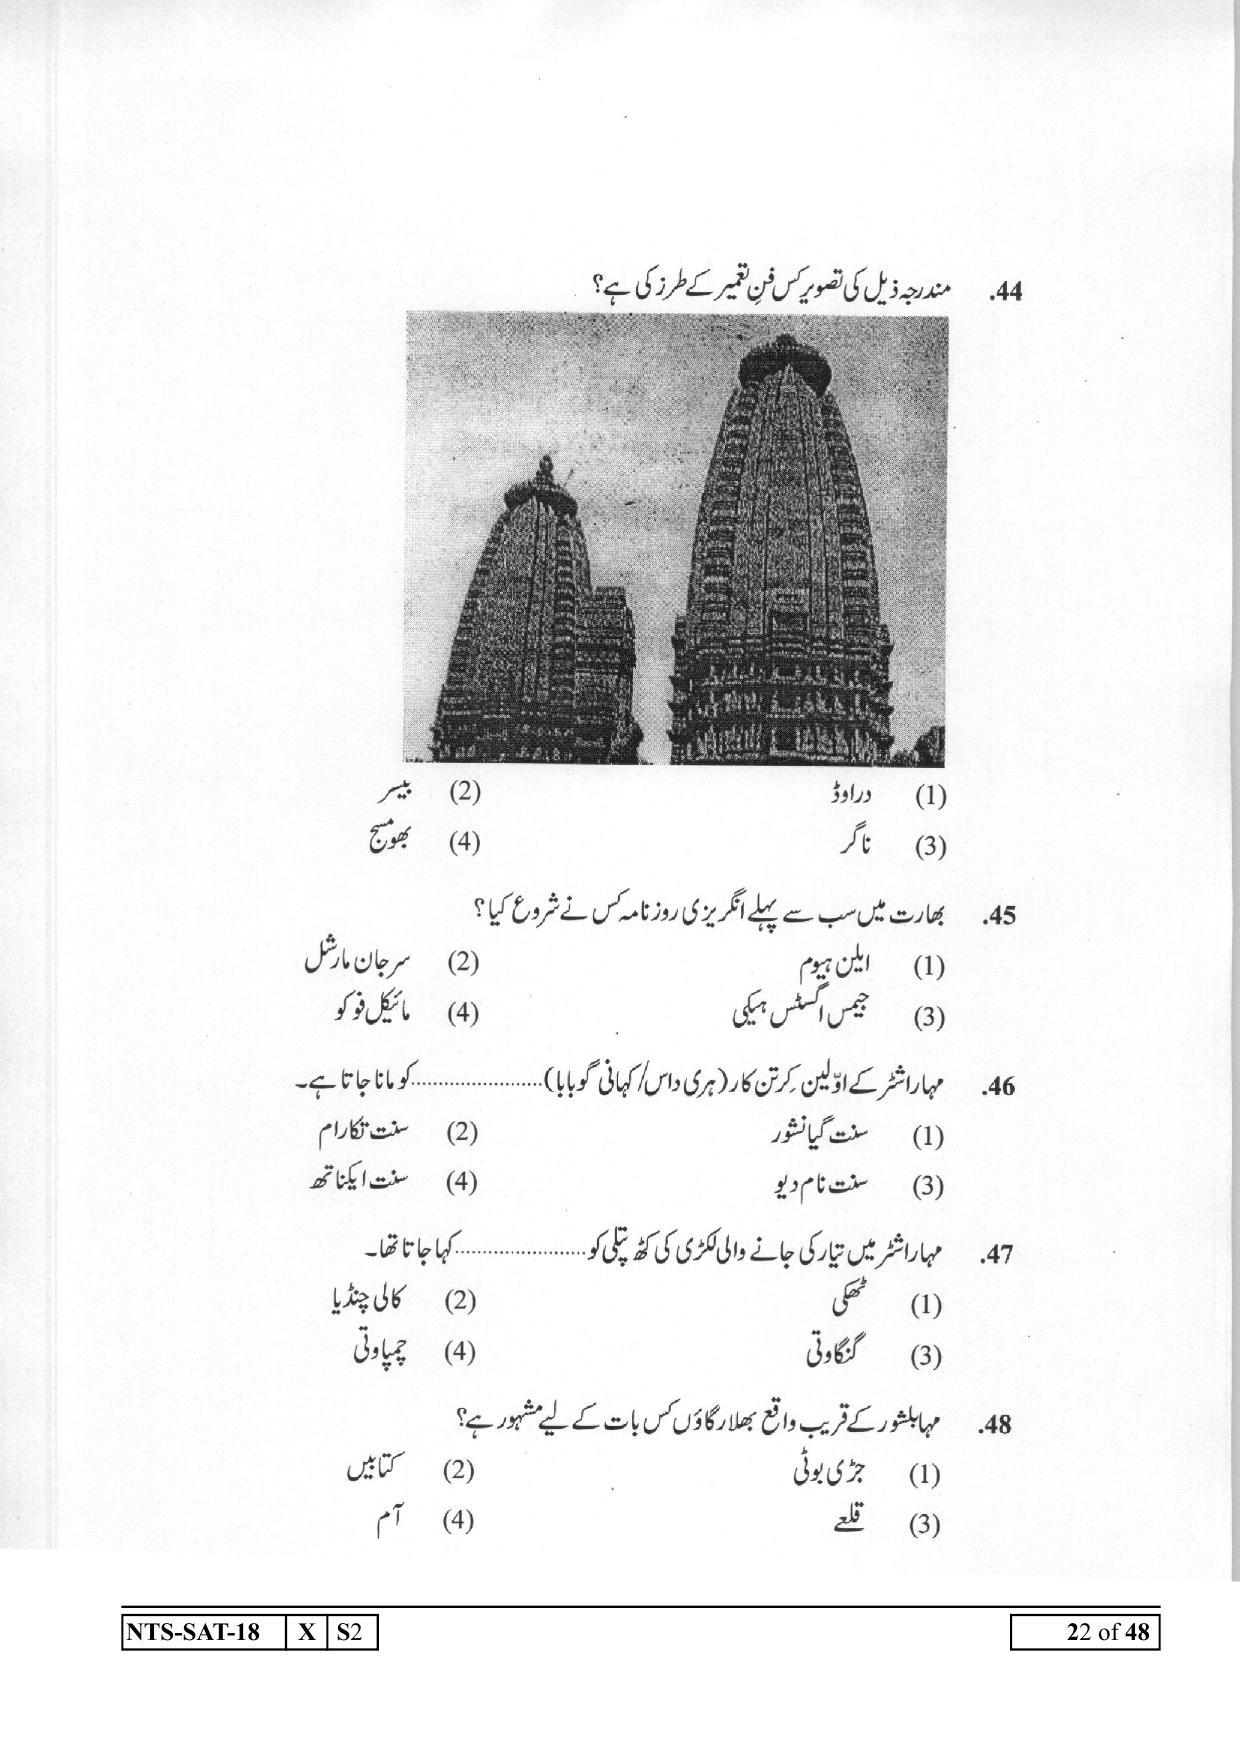 44. مندرجہ ذیل کی تصویر کس فنِ تعمیر کے طرز کی ہے؟
(1) دراوڈ (2) بیسر
(3) ناگر (4) بھومیج
45. بھارت میں سب سے پہلے انگریزی روزنامہ کس نے شروع کیا؟
(1) ایلن ہیوم (2) سر جان مارشل
(3) جیمس اگسٹس ہیکی (4) مائیکل فوکو
46. مہاراشٹر کے اوّلین کِرتن کار (ہری داس/کہانی گو بابا)......................کو مانا جاتا ہے۔
(1) سنت گیانشور (2) سنت تکارام
(3) سنت نام دیو (4) سنت ایکناتھ
47. مہاراشٹر میں تیار کی جانے والی لکڑی کی کٹھ پتلی کو......................کہا جاتا تھا۔
(1) ٹھکی (2) کالی چنڈیا
(3) گنگاوتی (4) چمپاوتی
48. مہابلشور کے قریب واقع بھلار گاؤں کس بات کے لیے مشہور ہے؟
(1) جڑی بوٹی (2) کتابیں
(3) قلعے (4) آم
NTS-SAT-18 X S2 22 of 48